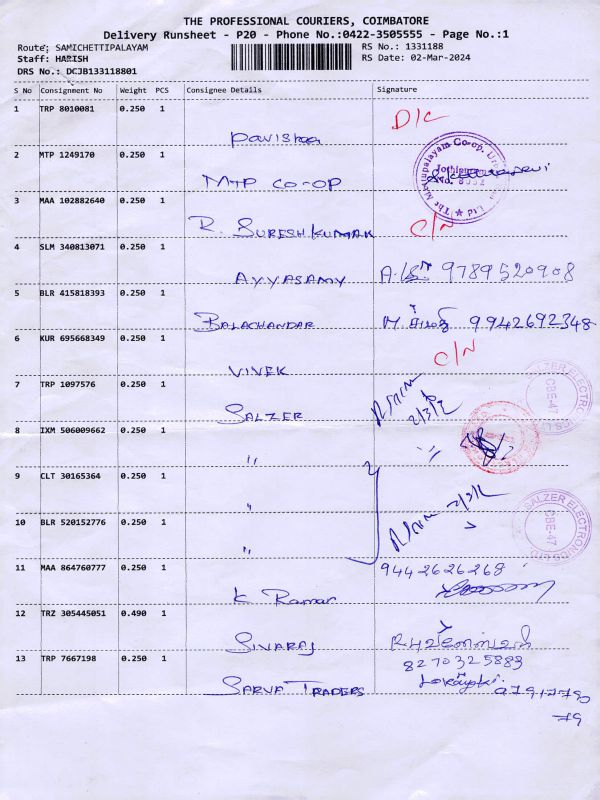 THE PROFESSIONAL COURIERS, COIMBATORE
Delivery Runsheet - P20 - Phone No.:0422-3505555 - Page No.:1
Route: SAMICHETTIPALAYAM
RS No.: 1331188
Staff: HARISH
RS Date: 02-Mar-2024
DRS No.: DCJB133118801
S No Consignment No Weight PCS Consignee Details Signature
1 TRP 8010081 0.250 1
D/C
Pavishaa
2 MTP 1249170 0.250 1
MTP CO-OP
3 MAA 102882640 0.250 1
R. SURESH KUMAR C/N
4 SLM 340813071 0.250 1
AYYASAMY 9789520908
5 BLR 415818393 0.250 1
BALACHANDAR 9942692348
6 KUR 695668349 0.250 1
C/N
VIVEK
7 TRP 1097576 0.250 1
SALZER 2/3/2
SALZER ELECTRONICS LTD. CBE-47
8 IXM 506009662 0.250 1
"
9 CLT 30165364 0.250 1
"
10 BLR 520152776 0.250 1
"
SALZER ELECTRONICS LTD. CBE-47
11 MAA 864760777 0.250 1
9442626268
K Raman
12 TRZ 305445051 0.490 1
SIVARAJ
8270325883
13 TRP 7667198 0.250 1
SARVA TRADERS 9791779
79